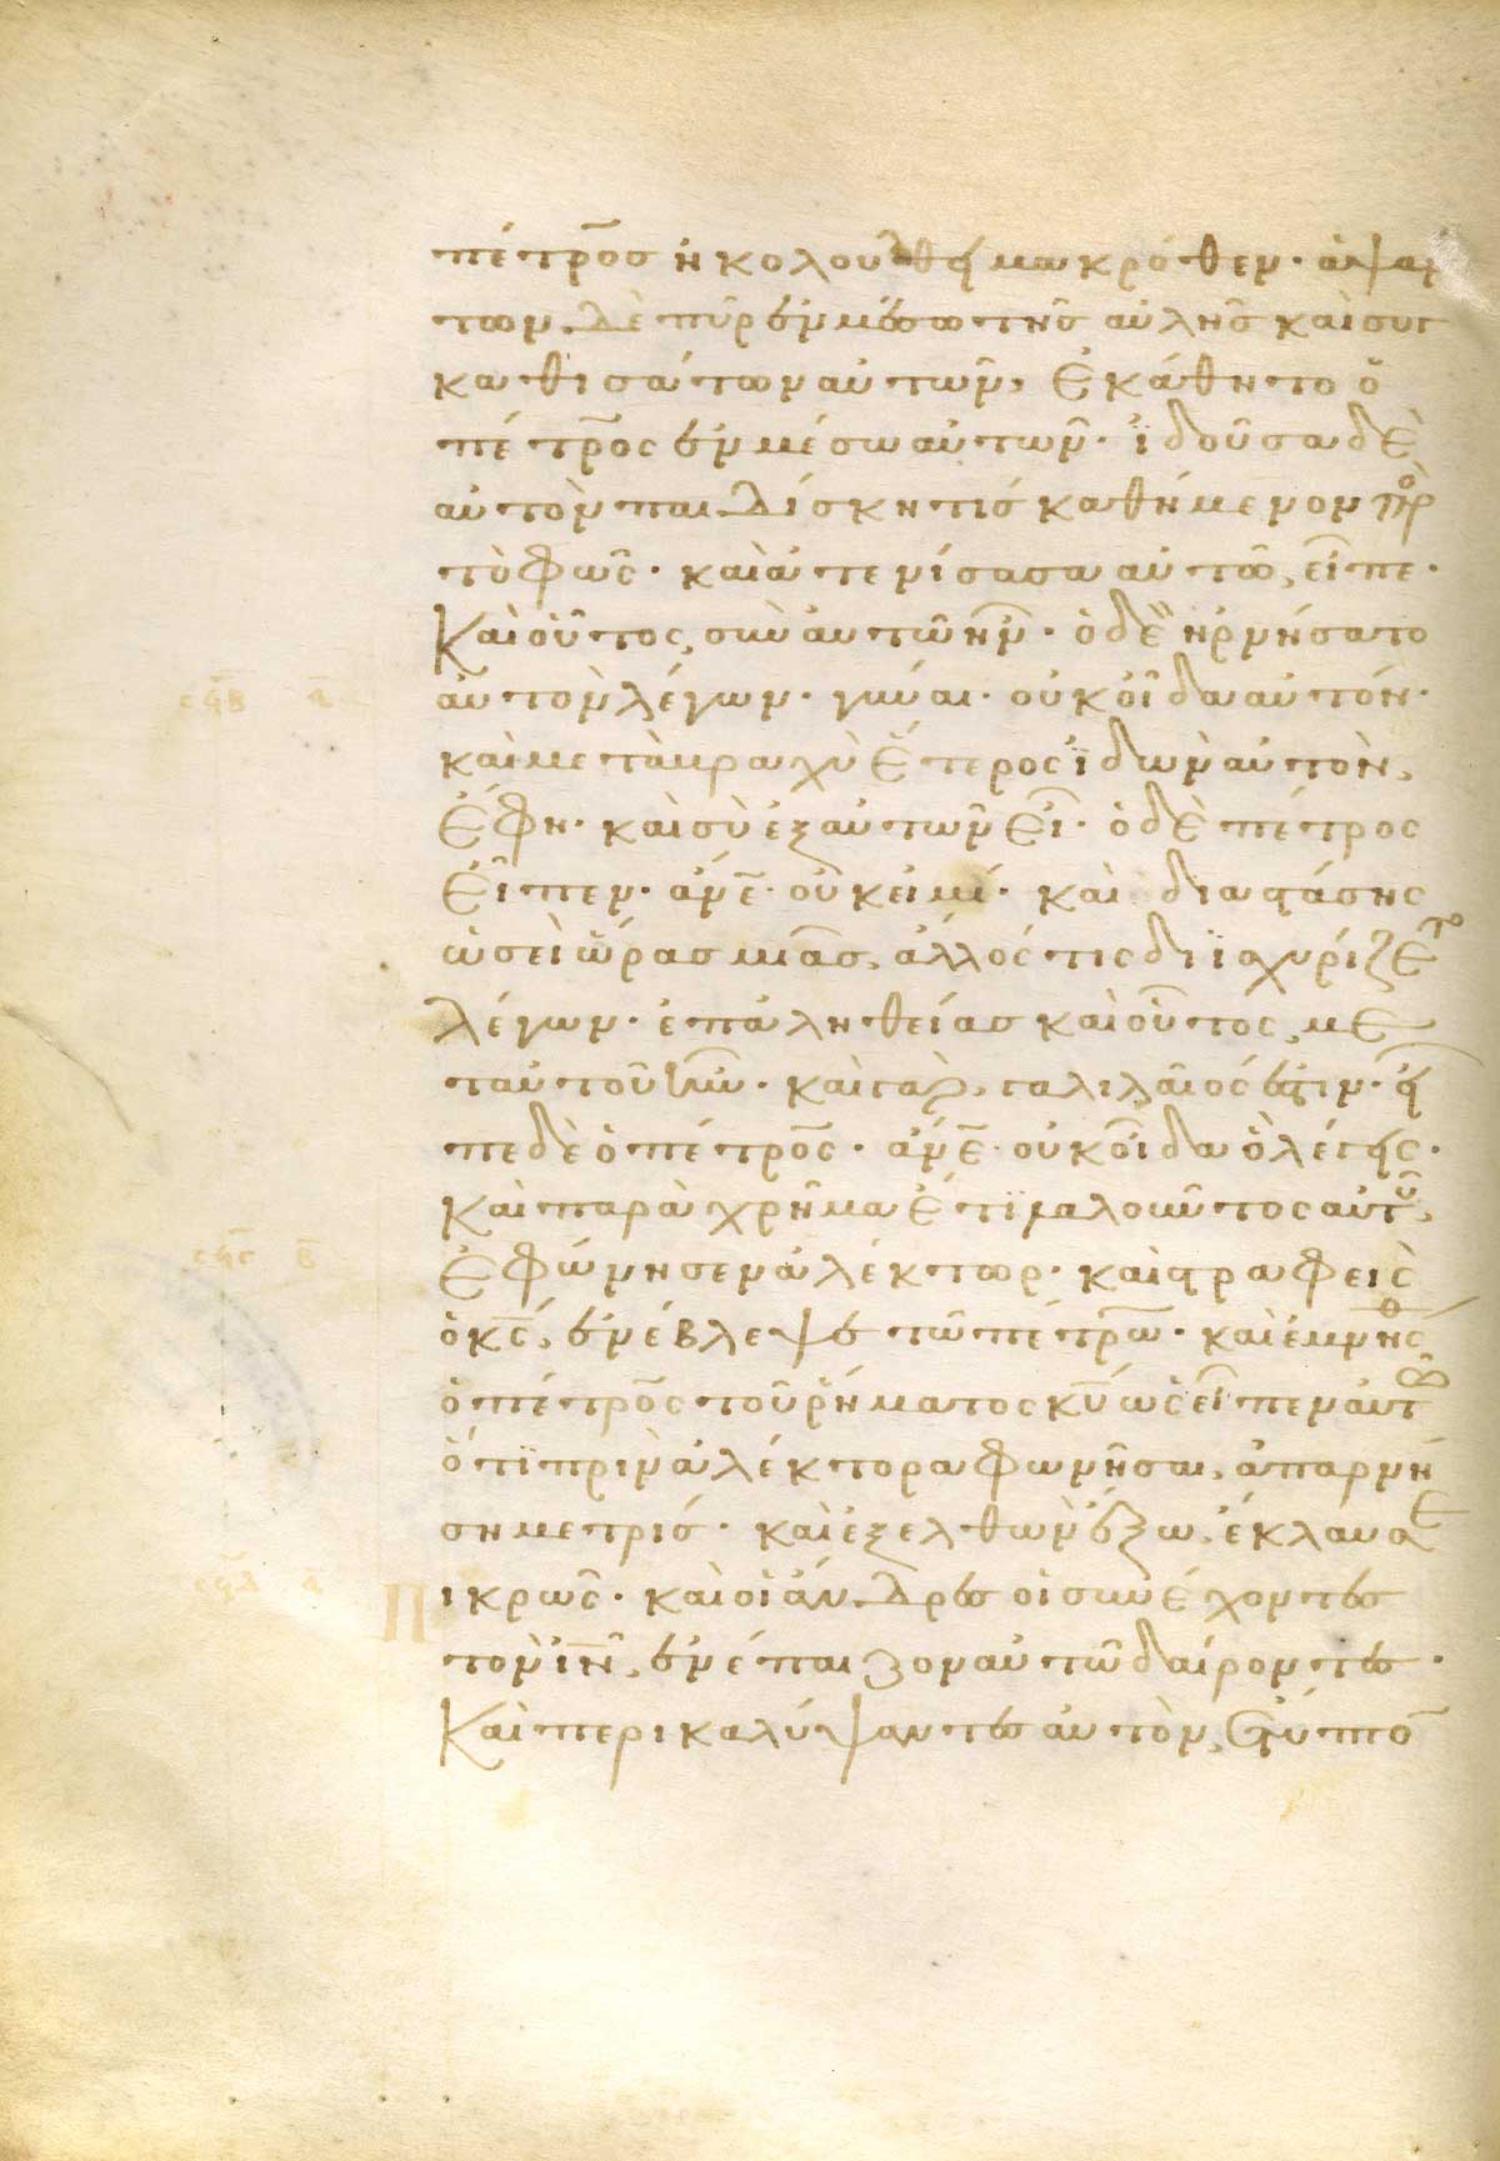 πέτρος ἠκολούθει μακρόθεν· ἁψάν
των δὲ πῦρ ἐν μέσω τῆς αὐλῆς καὶ συγ
καθισάντων αὐτῶν, ἐκάθητο ὁ
πέτρος ἐν μέσω αὐτῶν· ἰδοῦσα δὲ
αὐτὸν παιδίσκη τίς καθήμενον πρ
τὸ φῶς· καὶ ἀτενίσασα αὐτῶ, εἶπε·
Καὶ οὗτος, σὺν αὐτῶ ἦν· ὁ δὲ ἠρνήσατο
αὐτὸν λέγων· γύναι· οὐκ οἶδα αὐτόν·
σϟβ α
καὶ μετὰ βραχὺ ἕτερος ἰδὼν αὐτὸν,
ἔφη· καὶ σὺ ἐξ αὐτῶν εἶ· ὁ δὲ πέτρος
εἶπεν· ἄνε· οὐκ εἰμί· καὶ διαστάσης
ὡσεὶ ὥρας μιᾶς, ἄλλός τις διϊσχυρίζετο
λέγων· ἐπ ἀληθείας καὶ οὗτος, με
τ αὐτοῦ ἦν· καὶ γὰρ, γαλιλαῖός ἐστιν· εἶ
πε δὲ ὁ πέτρος· ἄνε· οὐκ οἶδα ὃ λέγεις·
Καὶ παραχρῆμα ἔτι λαλοῦντος αὐτοῦ,
ἐφώνησεν ἀλέκτωρ· καὶ στραφεὶς
ὁ κς, ἐνέβλεψε τῶ πέτρω· καὶ ἐμνήσθ
ὁ πέτρος τοῦ ῥήματος κυ ὡς εἶπεν αὐτῶ
ὅτι πρὶν ἀλέκτορα φωνῆσαι, ἀπαρνή
ση με τρίς· καὶ ἐξελθὼν ἔξω, ἔκλαυσε
Πικρῶς· καὶ οἱ ἄνδρες οἱ συνέχοντες
τὸν ιν, ἐνέπαιζον αὐτῶ δαίροντες·
Καὶ περικαλύψαντες αὐτὸν, ἔτυπτο